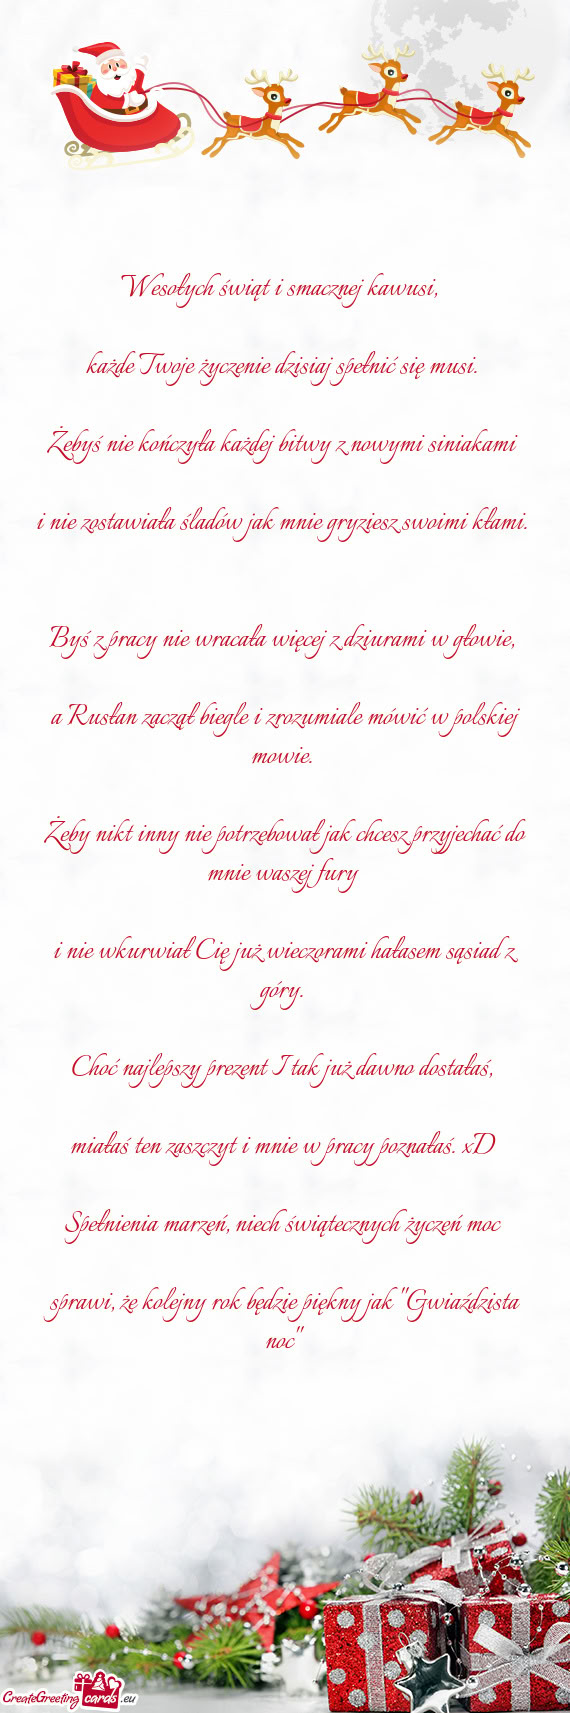 Wesołych świąt i smacznej kawusi,
każde Twoje życzenie dzisiaj spełnić się musi.
Żebyś nie kończyła każdej bitwy z nowymi siniakami
i nie zostawiała śladów jak mnie gryziesz swoimi kłami.
Byś z pracy nie wracała więcej z dziurami w głowie,
a Rusłan zaczął biegle i zrozumiale mówić w polskiej
mowie.
Żeby nikt inny nie potrzebował jak chcesz przyjechać do
mnie waszej fury
i nie wkurwiał Cię już wieczorami hałasem sąsiad z
góry.
Choć najlepszy prezent I tak już dawno dostałaś,
miałaś ten zaszczyt i mnie w pracy poznałaś. xD
Spełnienia marzeń, niech świątecznych życzeń moc
sprawi, że kolejny rok będzie piękny jak "Gwiaździsta
noc"
CreateGreeting cards .eu